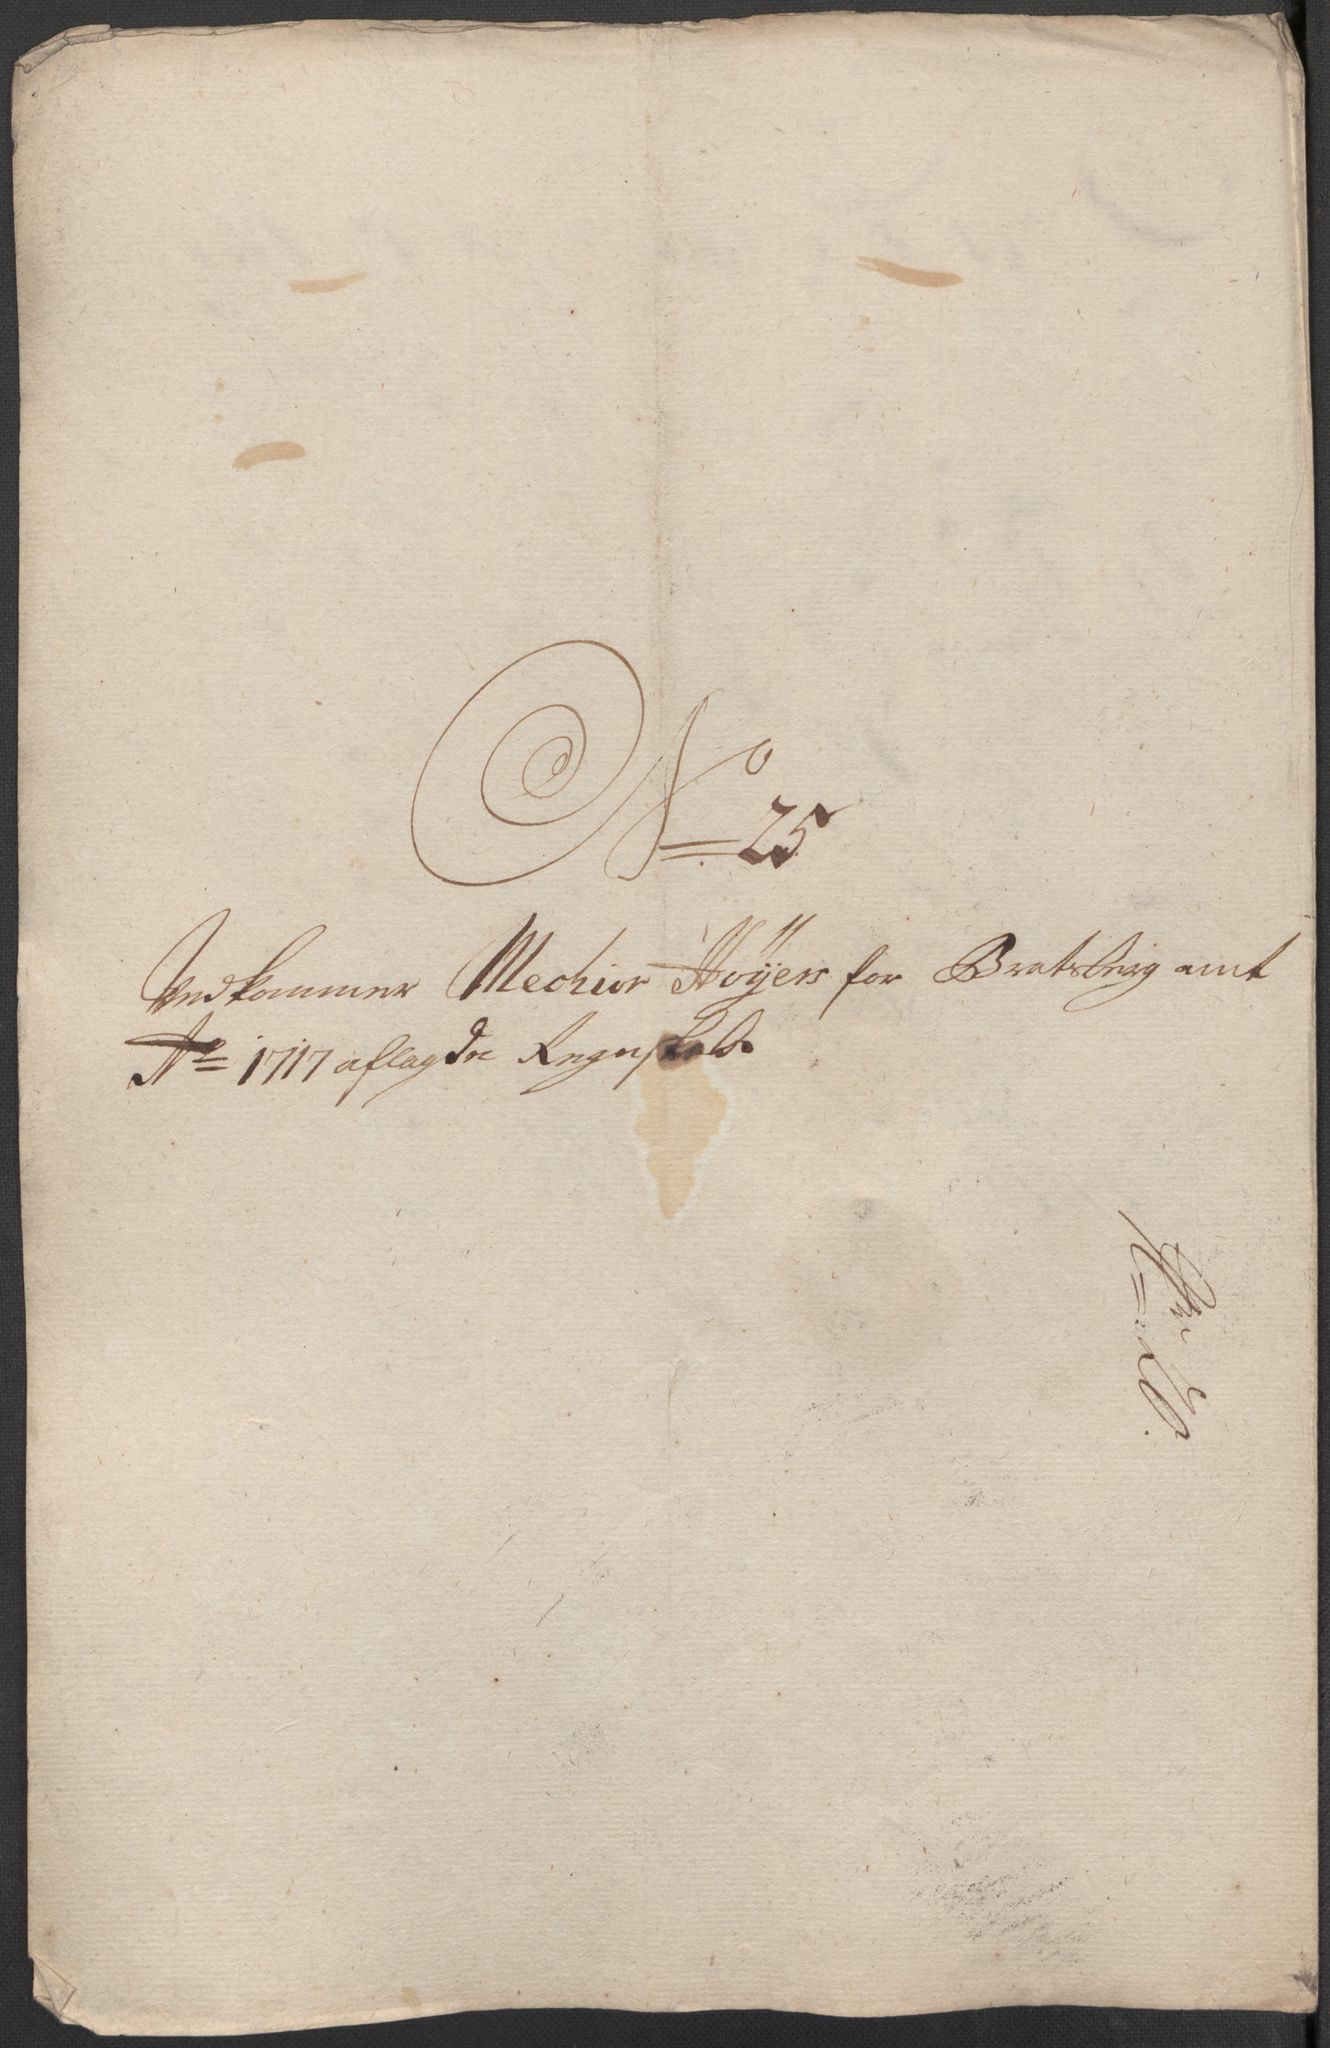 No 25
Vedkommer Mechior Høÿers for Bratsberg amt
Ao 1717 aflagde Regnskab.